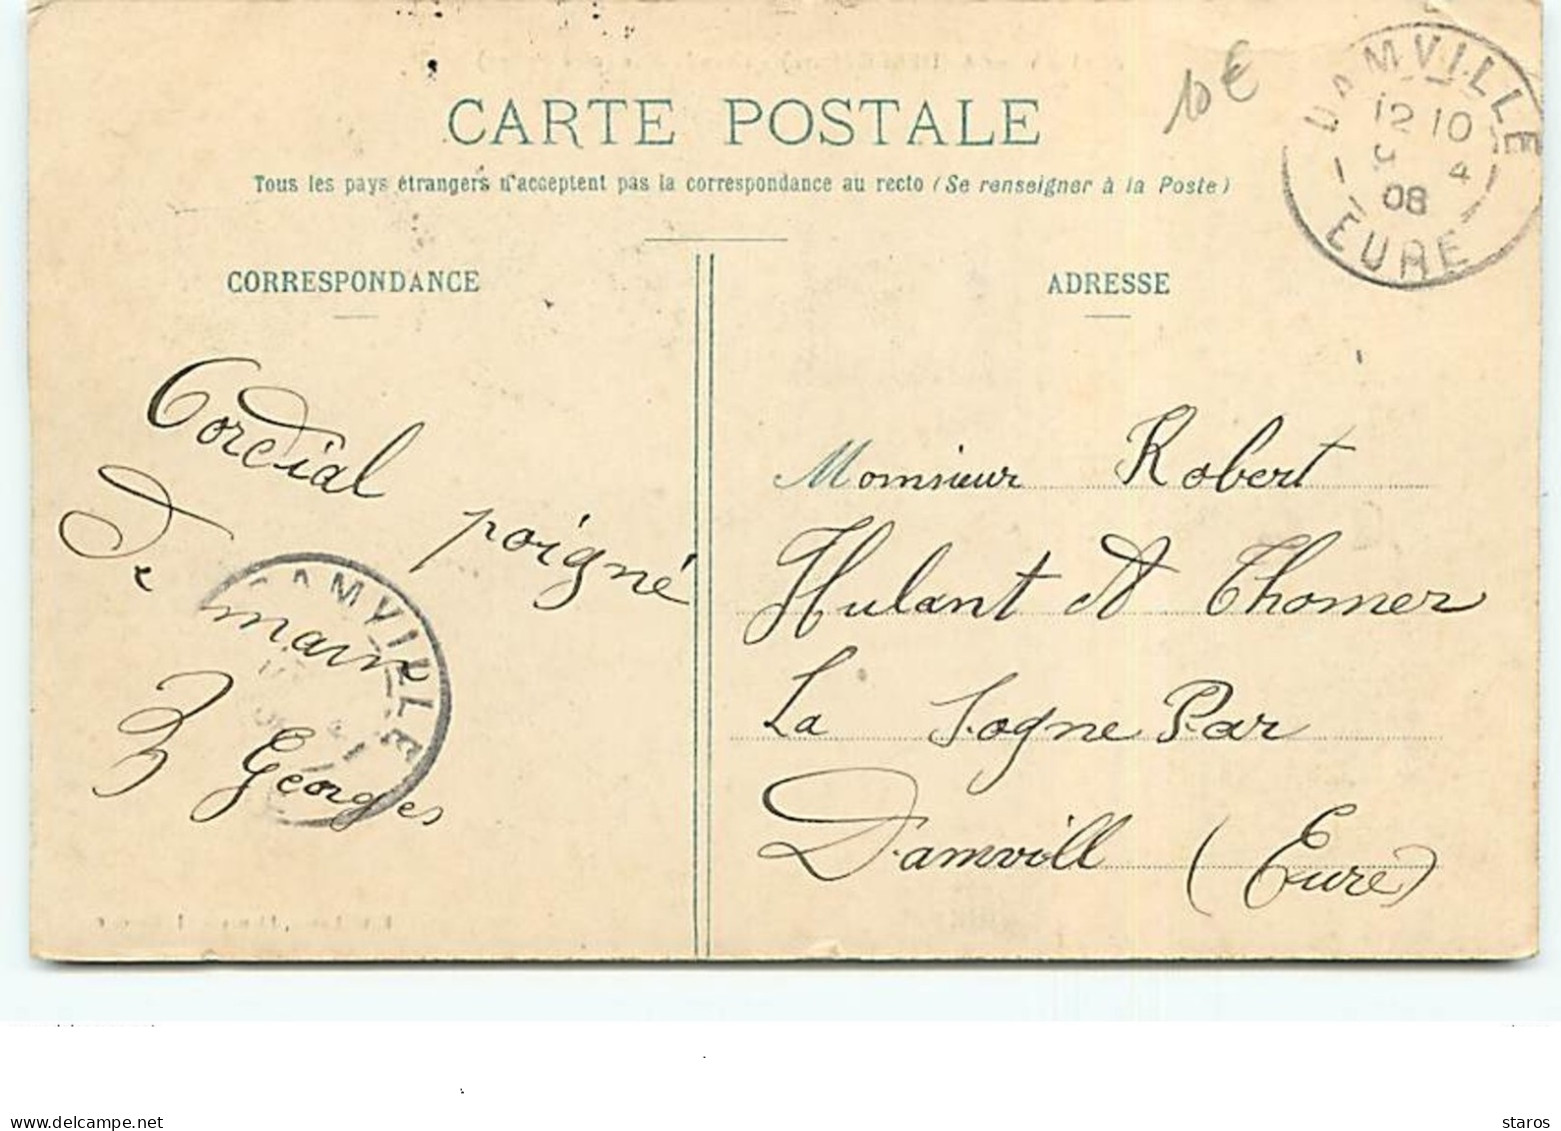 10 €
DAMVILLE
12 10
9 4
08
EURE
CARTE POSTALE
Tous les pays étrangers n'acceptent pas la correspondance au recto (Se renseigner à la Poste)
CORRESPONDANCE
Cordial poigné
De main
Georges
DAMVILLE
ADRESSE
Monsieur Robert
Hulant Thomer
La Sogne Par
Damvill (Eure)
www.delcampe.net
staros